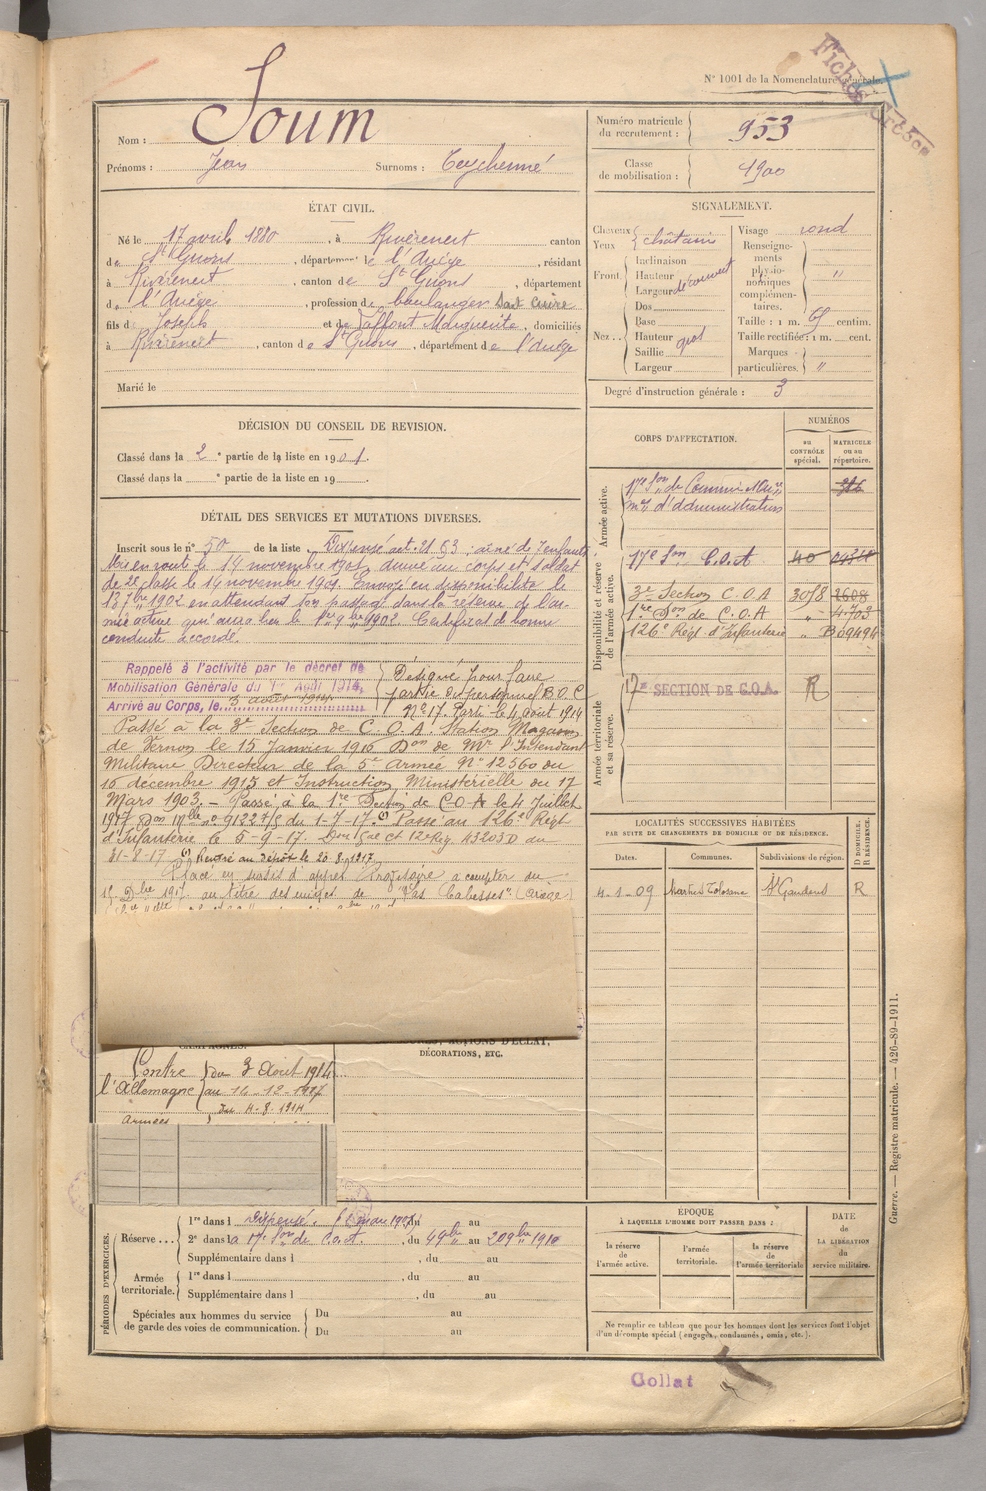 N° 1001 de la Nomenclature générale.
Soum
Nom :
Prénoms : Jean Surnoms : Teychenné
Numéro matricule du recrutement : 953
Classe de mobilisation : 1900
ÉTAT CIVIL.
Né le 17 avril 1880, à Rivèrenert canton
de St Girons, département de l'Ariège, résidant
à Rivèrenert, canton de St Girons, département
de l'Ariège, profession de boulanger Sait cuire
fils de Joseph et de Laffont Marguerite, domiciliés
à Rivèrenert, canton de St Girons, département de l'Ariège
Marié le
SIGNALEMENT.
Cheveux
Yeux châtains
Front Inclinaison
Hauteur
Largeur découvert
Nez Dos
Base
Hauteur gros
Saillie
Largeur
Visage rond
Renseignements physionomiques complémentaires. "
Taille : 1 m. 69 centim.
Taille rectifiée : 1 m. cent.
Marques particulières. "
Degré d'instruction générale : 3
DÉCISION DU CONSEIL DE REVISION.
Classé dans la 2e partie de la liste en 1901.
Classé dans la e partie de la liste en 19
DÉTAIL DES SERVICES ET MUTATIONS DIVERSES.
Inscrit sous le n° 50 de la liste Dispensé art. 21 : aîné de 7 enfants
Mis en route le 14 novembre 1901, arrivé au corps et soldat
de 2e classe le 14 novembre 1901. Envoyé en disponibilité le
1902 en attendant son passage dans la réserve de l'ar-
mée active qui aura lieu le 1er 9bre 1902. Certificat de bonne
conduite accordé.
Rappelé à l'activité par le décret de
Mobilisation Générale du 1er Août 1914,
Arrivé au Corps, le 3 août 1914
Désigné pour faire
partie du personnel B.O.C
N° 17. Parti le 4 août 1914
Passé à la 3e Section de C.O.A. Station Magasin
de Vernon le 15 Janvier 1916 Don de Mr l'Intendant
Militaire Directeur de la 5e Armée N° 12560 du
16 décembre 1915 et Instruction Ministérielle du 17
Mars 1903. — Passé à la 1re Section de C.O.A le 4 Juillet
1917 Don Mlle n° 91227/5 du 1-7-17. (1) Passé au 126e Régt
d'Infanterie le 5-9-17. Don et 12e Rég. 43203 D du
31-8-17 (1) Rentré au dépôt le 20-8-1917
Placé en sursis d'appel à compter du
15 Dbre 1917 au titre des usines de "Las Cabesses" (Ariège)
CORPS D'AFFECTATION.
NUMÉROS
au CONTRÔLE spécial.
MATRICULE ou au répertoire.
Armée active.
17e Son de Commis et Ouvers
mres d'administration
Disponibilité et réserve de l'armée active.
17e Son C.O.A 40
3e Section C.O.A 3078 2608
1re Don de C.O.A " 4703
126e Régt d'Infanterie " B09494
Armée territoriale et sa réserve.
17e SECTION DE C.O.A. R
LOCALITÉS SUCCESSIVES HABITÉES
PAR SUITE DE CHANGEMENTS DE DOMICILE OU DE RÉSIDENCE.
Dates. Communes. Subdivisions de région. D DOMICILE. R RÉSIDENCE.
4-1-09 Martres Tolosane St Gaudens R
DÉCORATIONS, ETC.
CAMPAGNES.
Contre
l'Allemagne
du 3 Août 1914
au 14-12-1917
Du 4-8-1914
Armées
PÉRIODES D'EXERCICES.
Réserve ... 1re dans l Dispensé. au
2e dans la 17e Son de C.O.A., du 4 9bre au 20 9bre 1910
Supplémentaire dans l , du au
Armée territoriale. 1re dans l , du au
Supplémentaire dans l , du au
Spéciales aux hommes du service de garde des voies de communication. Du au
Du au
ÉPOQUE
À LAQUELLE L'HOMME DOIT PASSER DANS :
la réserve de l'armée active.
l'armée territoriale.
la réserve de l'armée territoriale
DATE de LA LIBÉRATION du service militaire.
Ne remplir ce tableau que pour les hommes dont les services font l'objet
d'un décompte spécial (engagés, condamnés, omis, etc.).
Guerre. — Registre matricule. — 426-89-1911.
Collat